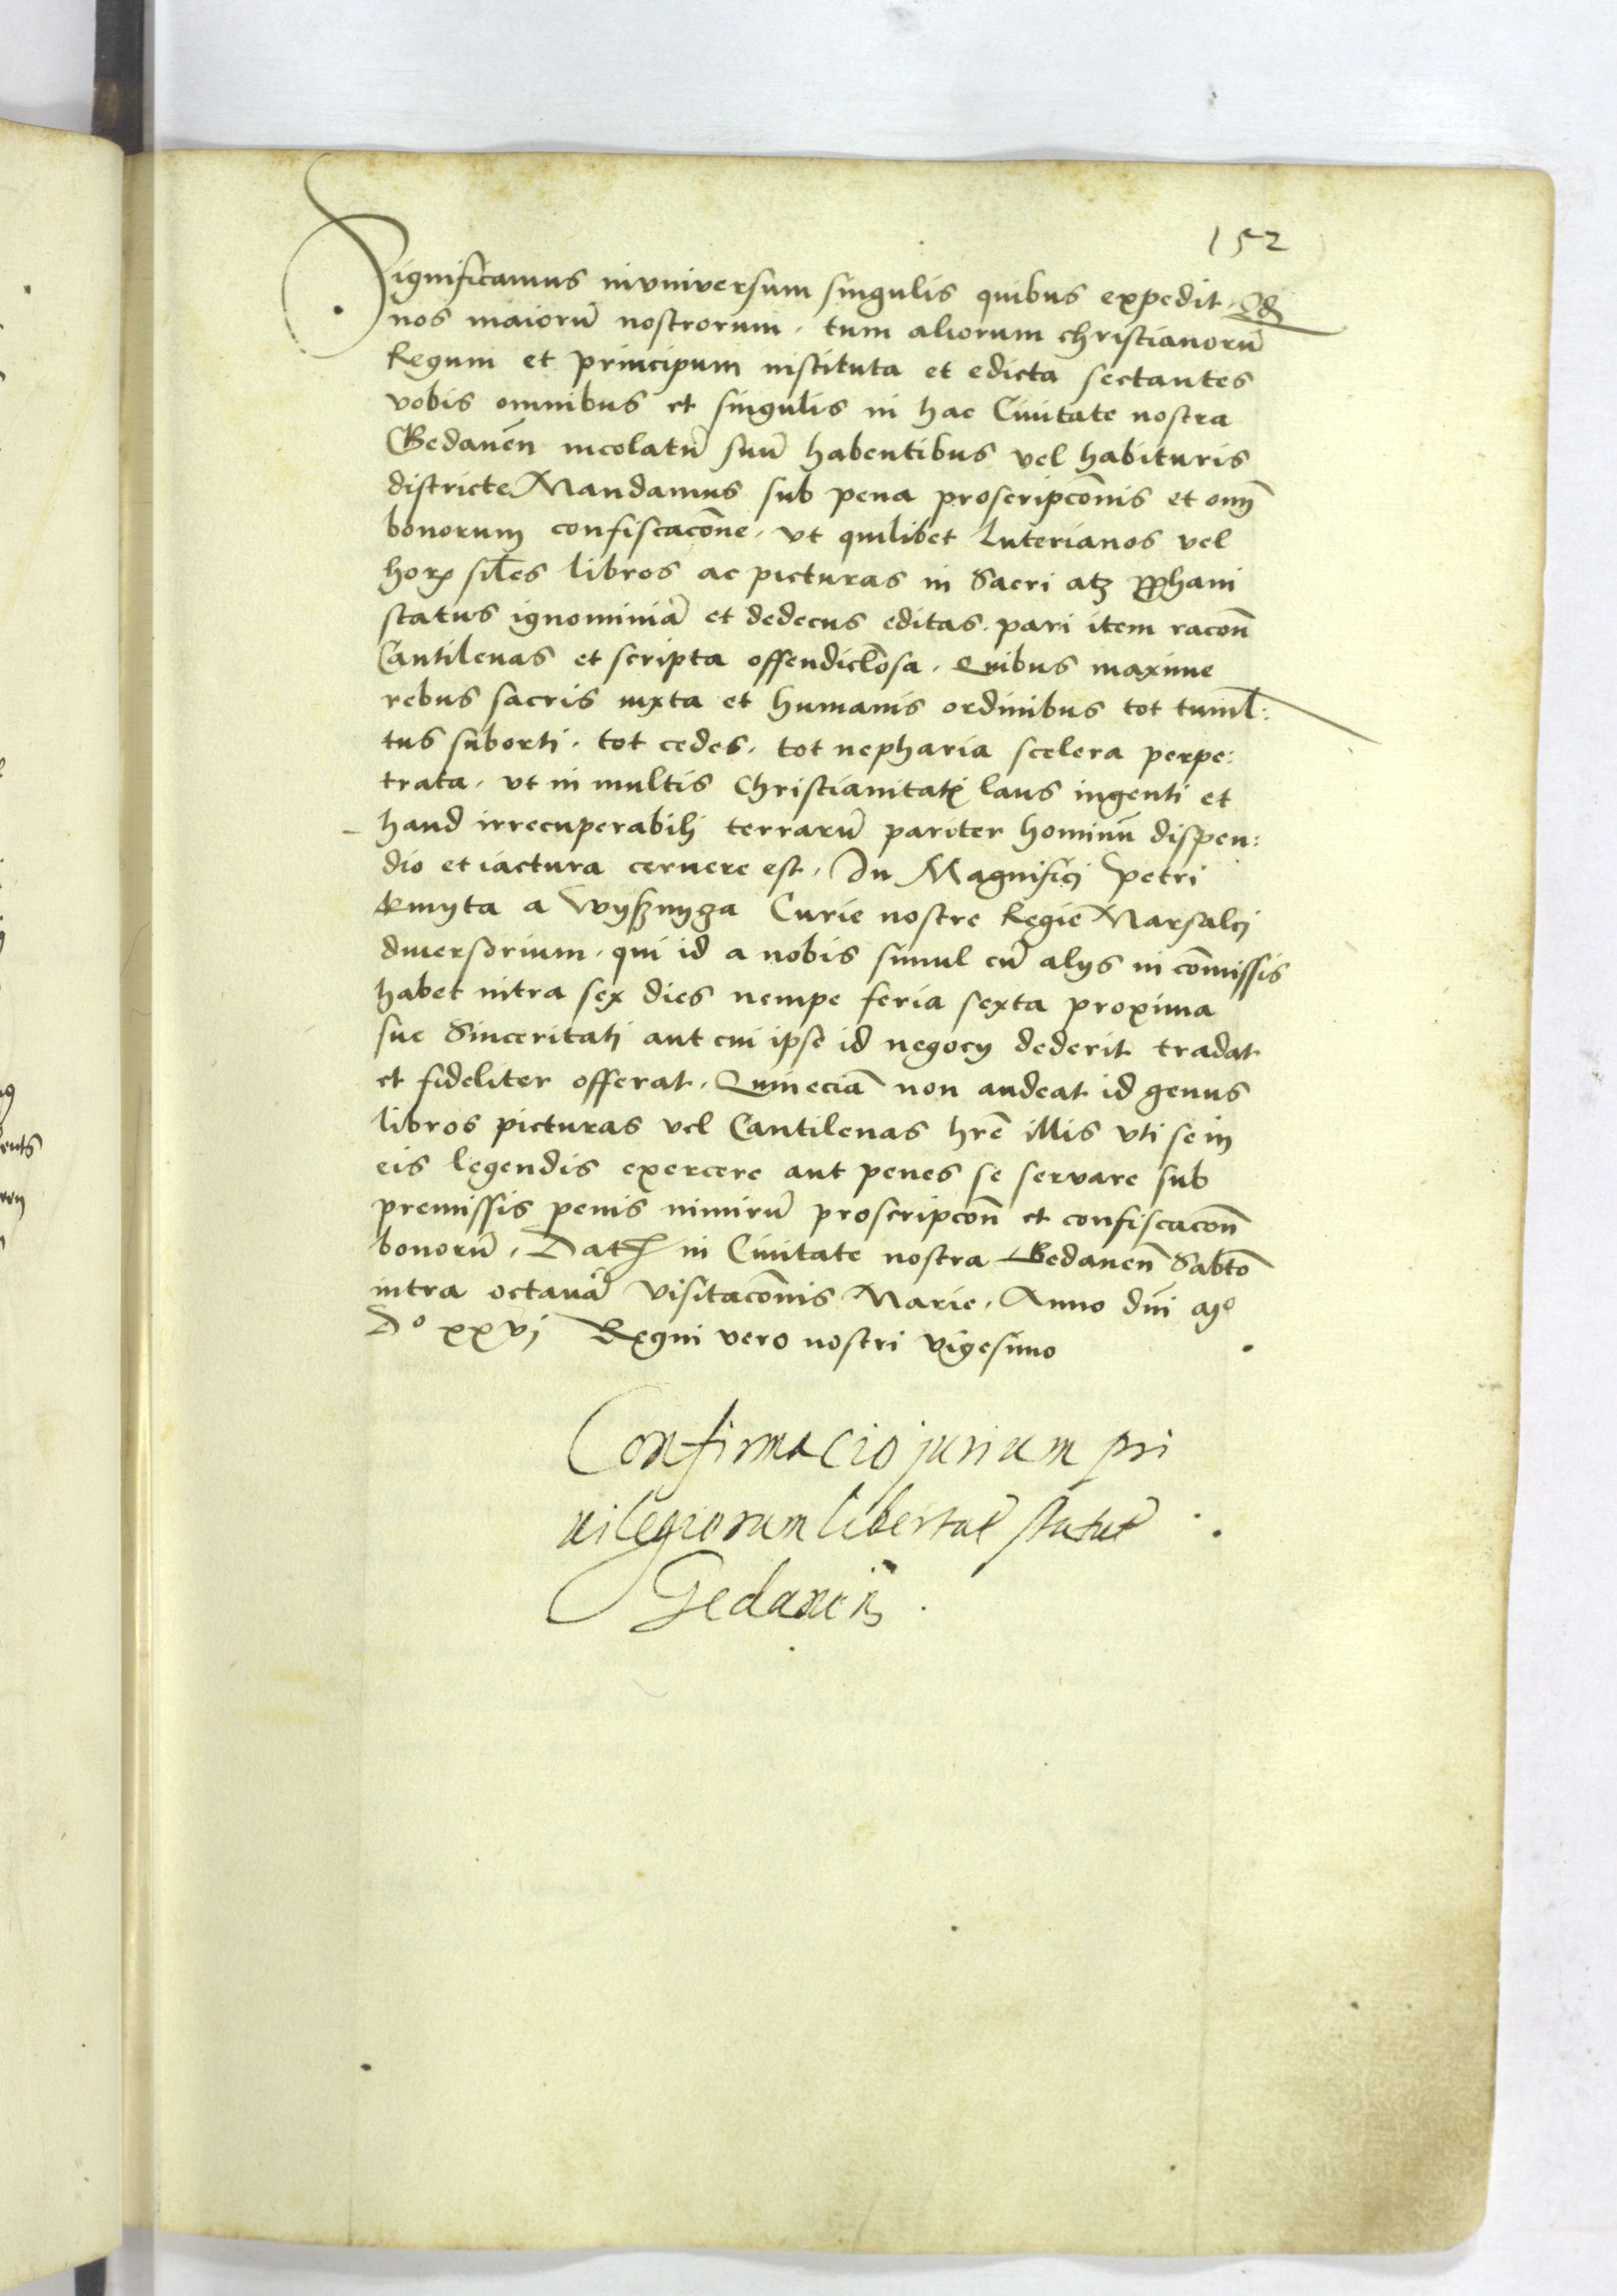 152
Significamus in vniversum singulis quibus expedit. Qd
nos maiorū nostrorum. tum aliorum christianorū
Regum et principum instituta et edicta sectantes
vobis omnibus et singulis in hac Ciuitate nostra
Gedanēn incolatū suū habentibus vel habituris
districte Mandamus sub pena proscripcōnis et om̄
bonorum confiscacōne. vt quilibet Luterianos vel
horꝝ sil̄es libros ac picturas in Sacri atqꝫ prophani
status ignominiā et dedecus editas. pari item racōn
Cantilenas et scripta offendiclōsa. Quibus maxime
rebus sacris iuxta et humanis ordinibus tot tumul:
tus suborti. tot cedes. tot nepharia scelera perpe:
trata. vt in multis Christianitatꝭ laus ingenti et
haud irrecuperabili terrarū pariter hominū dispen:
dio et iactura cernere est. In Magnifici Petri
Kmyta a Wyssnyga Curie nostre Regie Marsalci
diuersorium. qui id a nobis simul cū alijs in cōmissis
habet intra sex dies nempe feria sexta proxima
sue Sinceritati aut cui ipse id negocij dederit tradat
et fideliter offerat. Quineciā non audeat id genus
libros picturas vel Cantilenas hrē illis vti se in
eis legendis exercere aut penes se servare sub
premissis penis nimirū proscripcōn et confiscacōn
bonorū. Dat in Ciuitate nostra Gedanēn Sabto
intra octauā Visitacōnis Marie. Anno dn̄i Mº
Dº xxvj Regni vero nostri vigesimo
Confirmacio jurium pri
uilegiorum libertat̄ statut̄
Gedanen̄